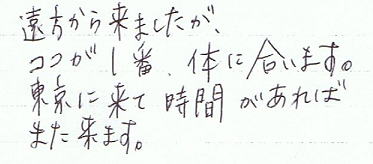 遠方から来ましたが、
ココが1番、体に合います。
東京に来て時間があれば
また来ます。